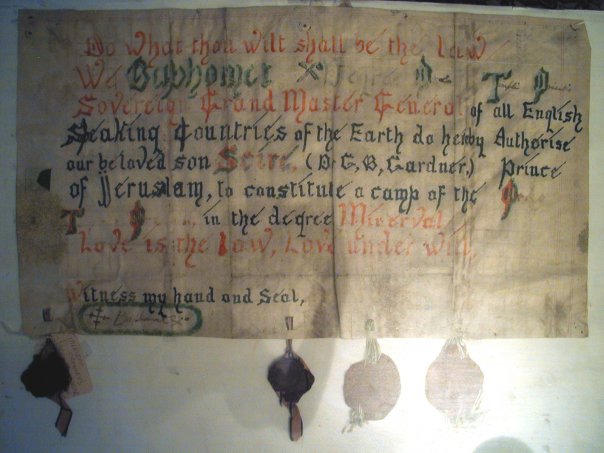 Do what thou wilt shall be the law
We Baphomet X Degree
Sovereign Grand Master General of all English
Speaking Countries of the Earth do hereby Authorise
our beloved son Scire, (D.G,B,Gardner,) Prince
of Jeruslam, to constitute a camp of the
in the degree Minerval
Love is the law, Love under will,
Witness my hand and Seal,